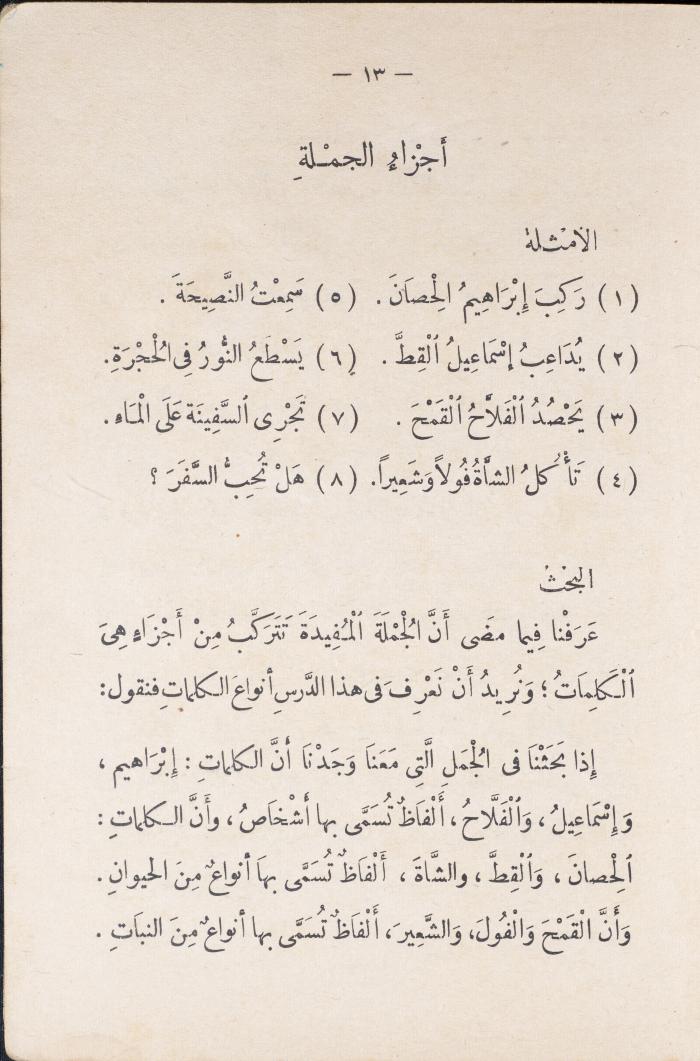 — ١٣ —
أَجْزَاءُ الجمْلةِ
الأمْثلة
(١) رَكِبَ إِبْرَاهِيمُ الْحِصَانَ . (٥) سَمِعْتُ النَّصِيحَةَ .
(٢) يُدَاعِبُ إِسْمَاعِيلُ الْقِطَّ . (٦) يَسْطَعُ النُّورُ فِى الْحُجْرَةِ.
(٣) يَحْصُدُ الْفَلاَّحُ الْقَمْحَ . (٧) تَجْرِى السَّفِينَة عَلَى الْمَاءِ .
(٤) تَأْكُلُ الشاَّةُ فُولاً وَشَعِيراً. (٨) هَلْ تُحِبُّ السَّفَرَ ؟
البحْثُ
عَرَفْنا فِيما مضَى أَنَّ الْجُمْلَةَ الْمُفِيدَةَ تَتَرَكَّبُ مِنْ أَجْزَاءٍ هِىَ
الْكَلِمَاتُ ؛ وَنُرِيدُ أَنْ نَعْرِفَ فى هذا الدَّرسِ أنواعَ الكلماتِ فنقول :
إِذا بَحَثْنَا فى الْجُمَلِ الَّتِى مَعَنَا وَجَدْنَا أَنَّ الكلماتِ : إِبْرَاهيم ،
وَإِسْمَاعِيلُ ، وَالْفَلَّاحُ ، أَلْفَاظٌ تُسَمَّى بها أَشْخَاصُ ، وأَنَّ الكلماتِ :
الْحِصانَ ، وَالْقِطَّ ، والشَّاةَ ، أَلْفَاظٌ تُسَمَّى بهاَ أنواعٌ مِنَ الحيوانِ .
وَأَنَّ الْقَمْحَ وَالْفُولَ، وَالشَّعِيرَ، أَلْفَاظٌ تُسَمَّى بها أنواعٌ مِنَ النباَتِ .